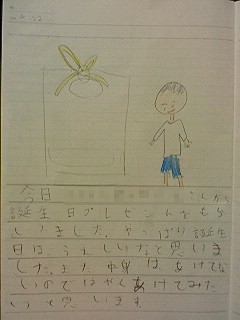 今日 しんから
誕生日プレゼントをもら
いました。やっぱり誕生
日は、うれしいなと思いま
した。また中身は、あけてな
いのではやくあけてみた
いと思います